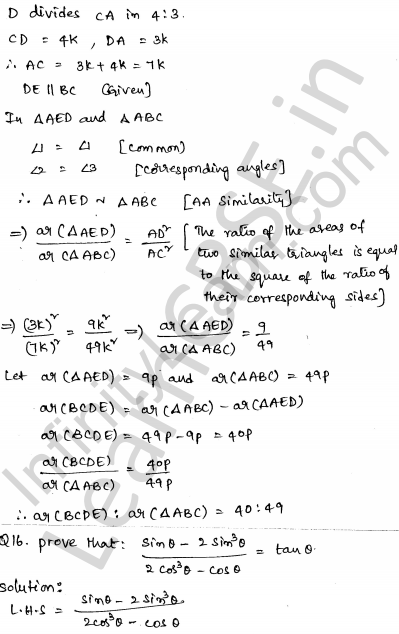 D divides CA in 4:3.
CD = 4k, DA = 3k
∴ AC = 3k+4k = 7k
DE || BC (Given]
In ΔAED and ΔABC
∠1 = ∠1 [common)
∠2 = ∠3 [corresponding angles]
∴ ΔAED ~ ΔABC [AA similarity]
⇒) ar(ΔAED) / ar(ΔABC) = AD² / AC² [The ratio of the areas of
two similar triangles is equal
to the square of the ratio of
their corresponding sides]
⇒) (3k)² / (7k)² = 9k² / 49k² ⇒) ar(ΔAED) / ar(ΔABC) = 9 / 49
Let ar(ΔAED) = 9p and ar(ΔABC) = 49p
ar(BCDE) = ar(ΔABC) - ar(ΔAED)
ar(BCDE) = 49p - 9p = 40p
ar(BCDE) / ar(ΔABC) = 40p / 49p
∴ ar(BCDE) : ar(ΔABC) = 40:49
Q16. prove that: sinθ - 2 sin³θ / 2 cos³θ - cosθ = tanθ.
solution:
L.H.S = sinθ - 2 sin³θ / 2cos³θ - cosθ